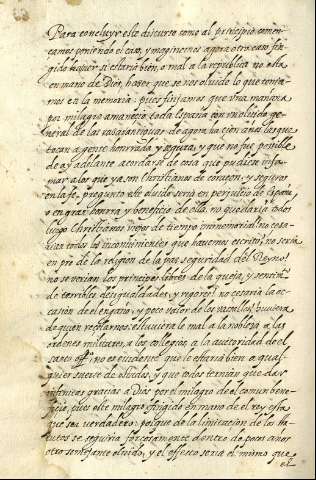 Para concluyr este discurso como al principio comen-
çamos poniendo el caso, y imaginemos agora otro caso fin-
gido haver si estaria bien, o mal a la republica no esta
en mano de Dios, hazer que se nos olvide lo que tene-
mos en la memoria: pues finjamos que una mañana
por milagro amanecio toda España con un olvido ge-
neral de las cosas antiguas de agora ha cien años las que
tocan a gente honrrada y segura, y que no fue posible
de ay adelante acordarse de cosa que pudiera infa-
mar a los que ya son Christianos de coraçon, y seguros
en la fe, pregunto este olvido seria en perjuicio de España
o en gran honrra y beneficio de ella, no quedaria todos
luego Christianos viejos de tiempo ynmemorial no cesa-
rian todos los inconvenientes que havemos escrito, no seria
en pro de la religion de la paz seguridad del Reyno!
no se verian los principes libres de la queja, y sentim.to
de terribles desigualdades, y rigores! no cesaria la oc-
casion del engaño, y poco valor de los vasallos! huviera
de quien recelarnos, estuviera le mal a la nobleza a las
ordenes militares, a los collegios, a la autoridad del
santo offi.o no es evidente que le estaria bien a qual-
quier suerte de estados, y que todos ternian que dar
infinitas gracias a Dios por el milagro de el comun bene-
ficio, pues este milagro fingido en mano de el rey esta
que sea verdadero: porque de la limitacion de los ha-
bitos se seguiria forçosamente dentro de pocos años
otro semejante olvido, y el effecto seria el mismo que
el